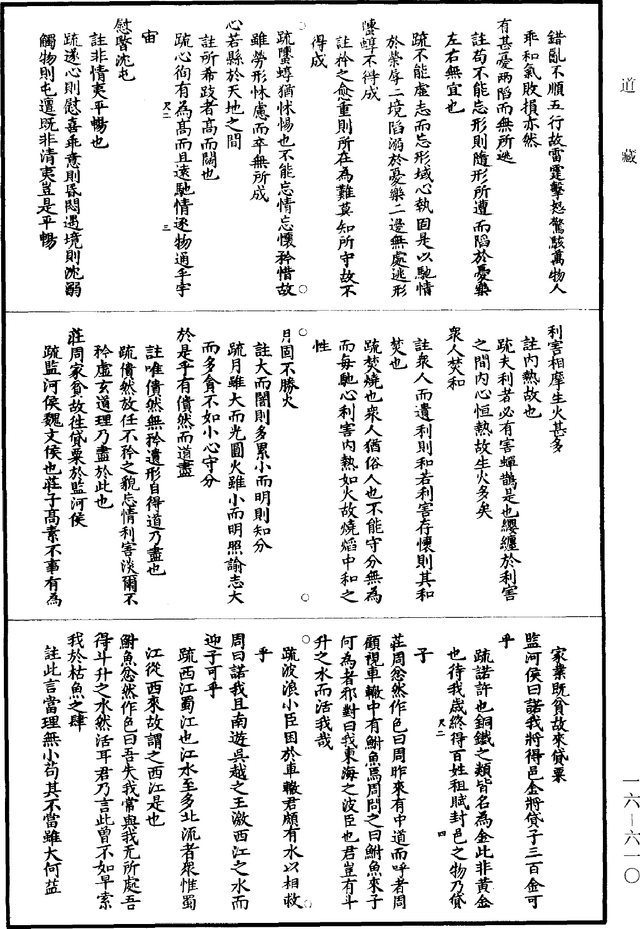 道藏
錯亂不順五行故雷霆擊怒驚駭萬物人
乖和氣敗損亦然
有甚憂兩陷而無所逃
註苟不能忘形則隨形所遭而陷於憂樂
左右無宜也
疏不能虛志而忘形域心執固是以馳情
於榮辱二境陷溺於憂樂二邊無處逃形
螴蜳不得成
註矜之愈重則所在為難莫知所守故不
得成
疏螴蜳猶怵惕也不能忘情忘懷矜惜故
雖勞形怵慮而卒無所成
心若縣於天地之間
註所希跂者高而闊也
疏心徇有為高而且遠馳情逐物通乎宇
尺二 三
宙
慰暋沈屯
註非情夷平暢也
疏遂心則慰喜乖意則昏悶遇境則沈溺
觸物則屯邅既非清夷豈是平暢
利害相摩生火甚多
註內熱故也
疏夫利者必有害蟬鵲是也纓纏於利害
之間內心恒熱故生火多矣
衆人焚和
註衆人而遺利則和若利害存懷則其和
焚也
疏焚燒也衆人猶俗人也不能守分無為
而每馳心利害內熱如火故燒焰中和之
性
月固不勝火
註大而闇則多累小而明則知分
疏月雖大而光圓火雖小而明照諭志大
而多貪不如小心守分
於是乎有僓然而道盡
註唯僓然無矜遺形自得道乃盡也
疏僓然放任不矜之貌忘情利害淡爾不
矜虛玄道理乃盡於此也
莊周家貧故往貸粟於監河侯
疏監河侯魏文侯也莊子高素不事有為
家業既貧故來貸粟
監河侯曰諾我將得邑金將貸子三百金可
乎
疏諾許也銅鐵之類皆名為金此非黃金
也待我歲終得百姓租賦封邑之物乃貸
尺二 四
子
莊周忿然作色曰周昨來有中道而呼者周
顧視車轍中有鮒魚焉周問之曰鮒魚來子
何為者邪對曰我東海之波臣也君豈有斗
升之水而活我哉
疏波浪小臣困於車轍君頗有水以相救
乎
周曰諾我且南遊吳越之王激西江之水而
迎子可乎
疏西江蜀江也江水至多北流者衆惟蜀
江從西來故謂之西江是也
鮒魚忿然作色曰吾失我常與我无所處吾
得斗升之水然活耳君乃言此曾不如早索
我於枯魚之肆
註此言當理無小苟其不當雖大何益
一六—六一〇